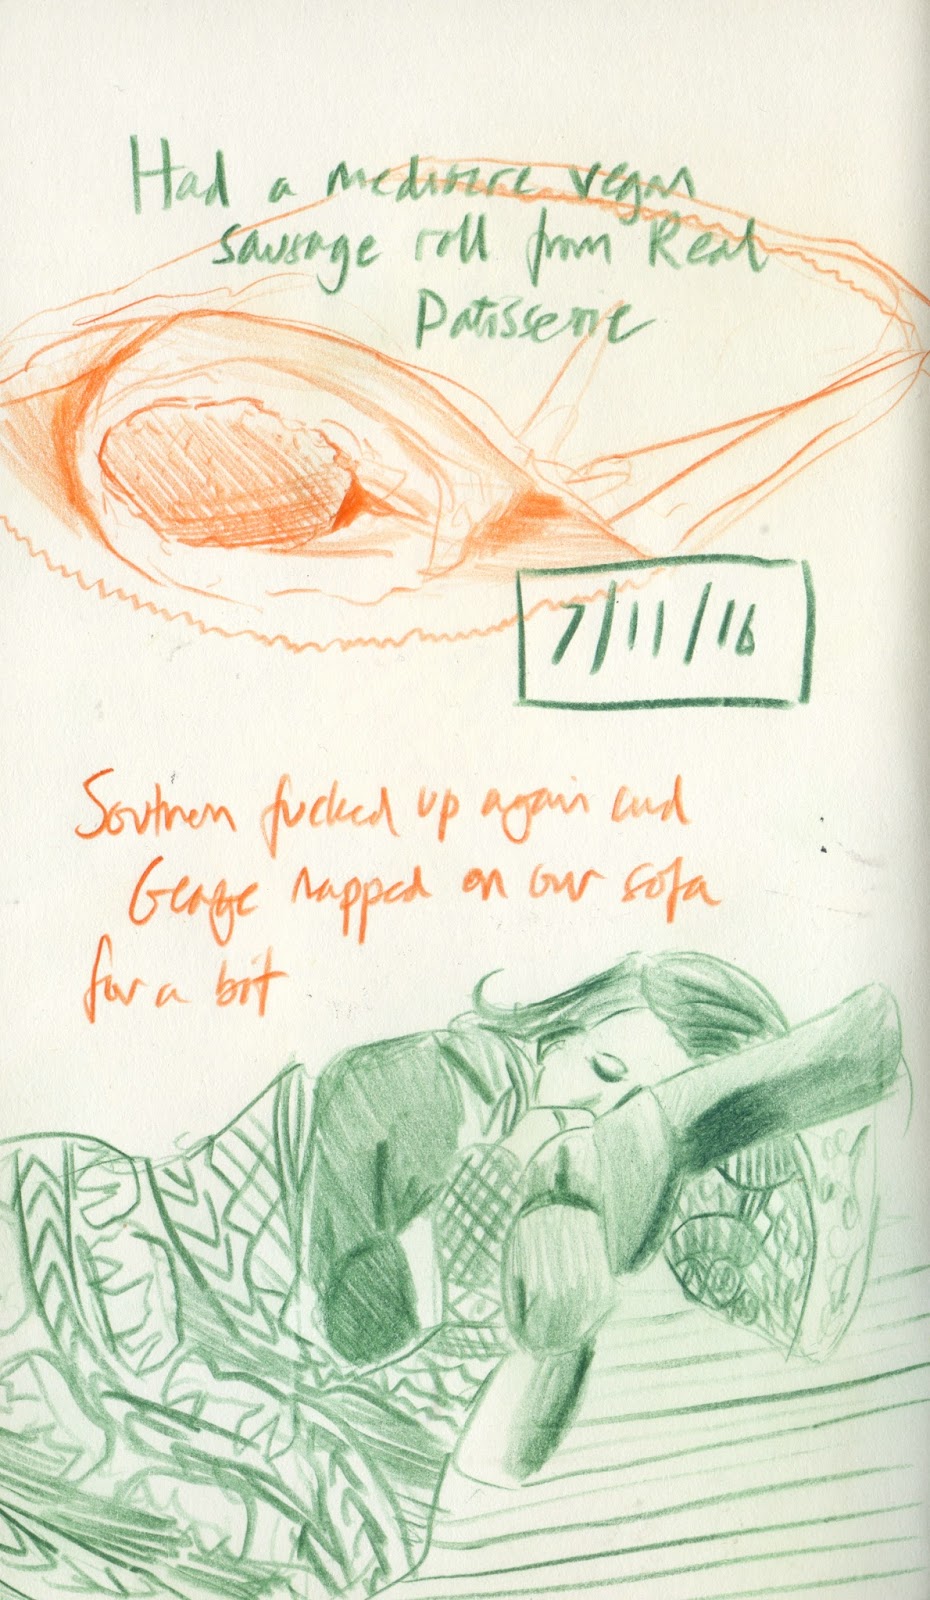 Had a mediocre vegan
sausage roll from Real
Patisserie
7/11/16
Southern fucked up again and
George napped on our sofa
for a bit